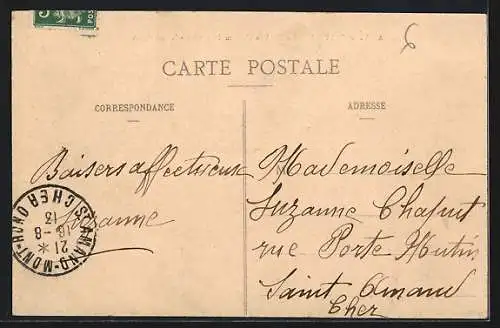 CARTE POSTALE
CORRESPONDANCE
ADRESSE
6
Baisers affectueux
Suzanne
Mademoiselle
Suzanne Chapuit
rue Porte Mutin
Saint Amand
Cher
ST AMAND-MONT-ROND
CHER
21 *
16-8
13
5
POS